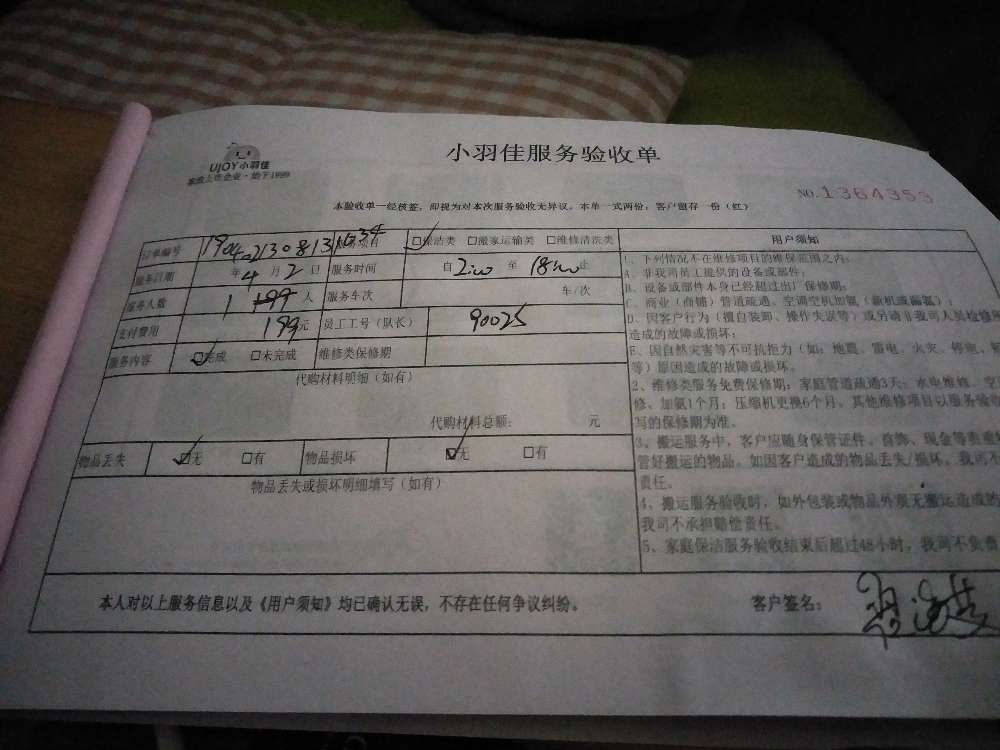 UJOY小羽佳
家政上市企业·始于1999
小羽佳服务验收单
NO.1364353
本验收单一经核签，即视为对本次服务验收无异议。本单一式两份，客户留存一份（红）
订单编号 服务项目 ☑保洁类 □搬家运输类 □维修清洗类 用户须知
服务日期 年4月2日 服务时间 自 至18:00止
服务人数 1 人 服务车次 车/次
支付费用 199元 员工工号（队长） 90025
服务内容 ☑完成 □未完成 维修类保修期
代购材料明细（如有）
代购材料总额： 元
物品丢失 ☑无 □有 物品损坏 ☑无 □有
物品丢失或损坏明细填写（如有）
1、下列情况不在维修项目的维保范围之内：
A、非我司员工提供的设备或部件；
B、设备或部件本身已经超过出厂保修期；
C、商业（商铺）管道疏通、空调空机加氟（新机或漏氟）；
D、因客户行为（擅自装卸、操作失误等）或另请非我司人员检修
造成的故障或损坏；
E、因自然灾害等不可抗拒力（如：地震、雷电、火灾、停电、
等）原因造成的故障或损坏。
2、维修类服务免费保修期：家庭管道疏通3天；水电维修、空
修、加氟1个月；压缩机更换6个月。其他维修项目以服务验收
写的保修期为准。
3、搬运服务中，客户应随身保管证件、首饰、现金等贵重
管好搬运的物品。如因客户造成的物品丢失/损坏，我司不
责任。
4、搬运服务验收时，如外包装或物品外观无搬运造成的
我司不承担赔偿责任。
5、家庭保洁服务验收结束后超过48小时，我司不负责
本人对以上服务信息以及《用户须知》均已确认无误，不存在任何争议纠纷。 客户签名：